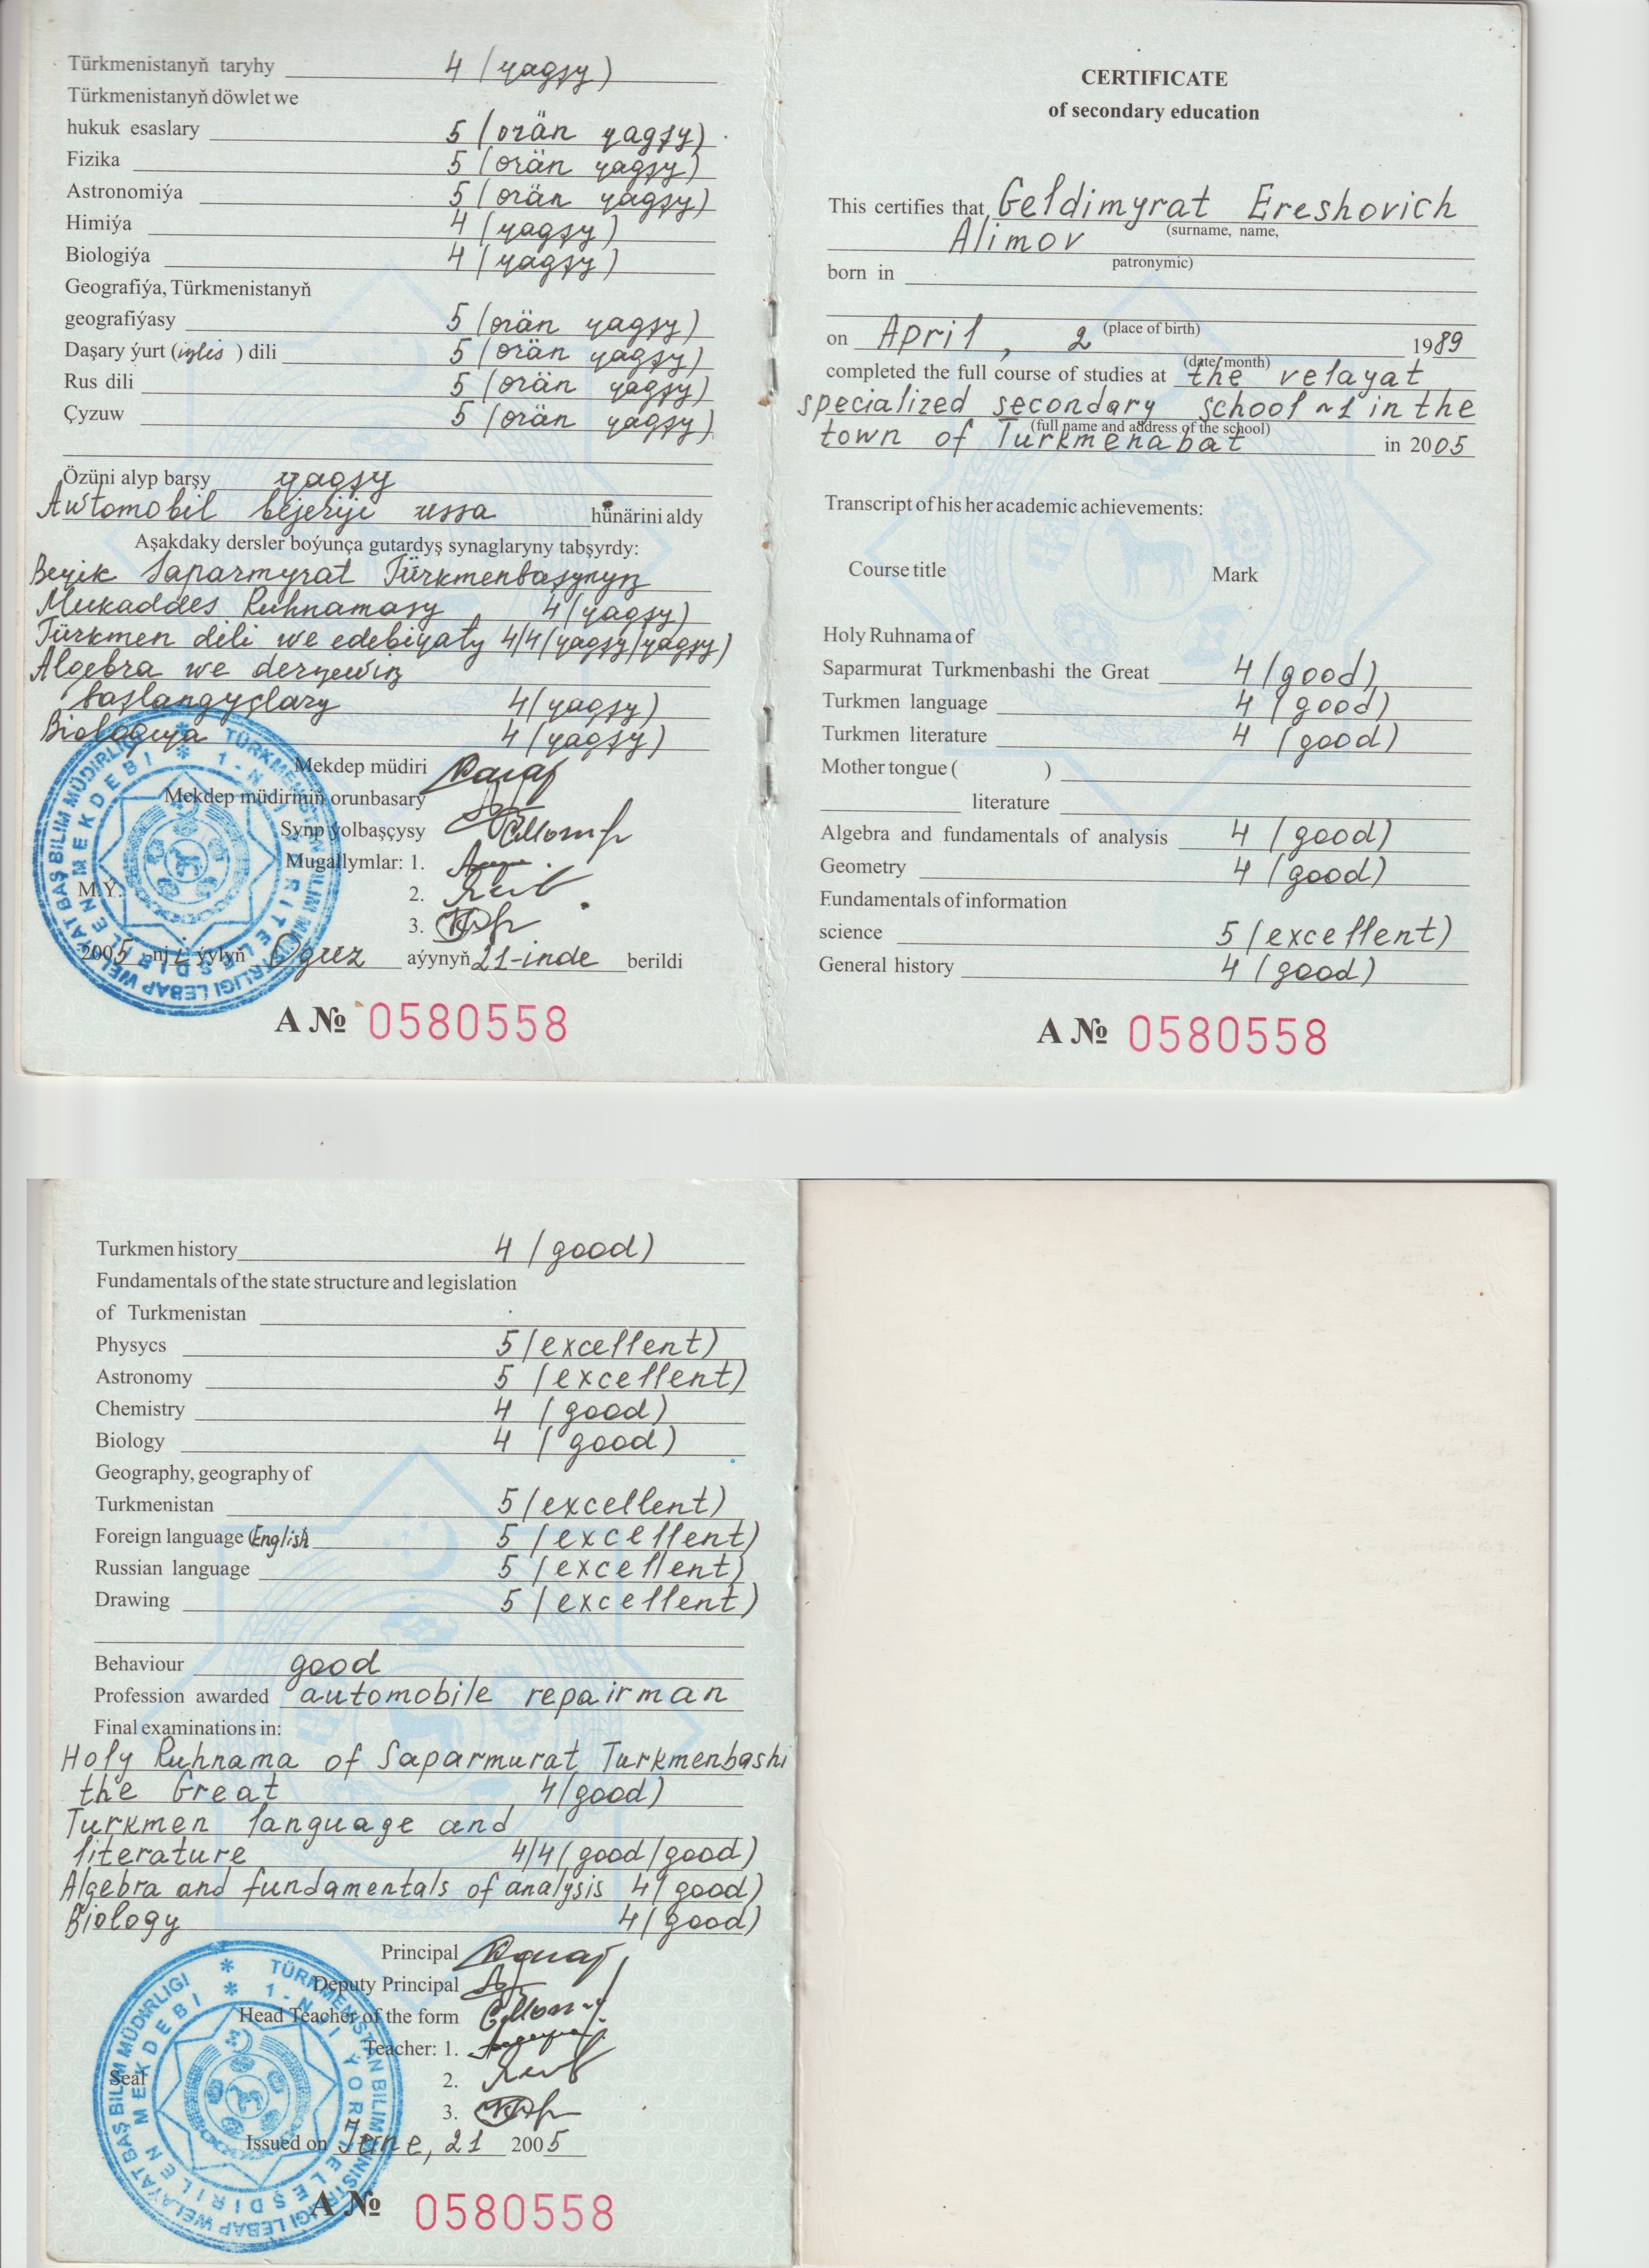 Türkmenistanyň taryhy 4 (ýagşy)
Türkmenistanyň döwlet we
hukuk esaslary 5 (orän ýagşy)
Fizika 5 (orän ýagşy)
Astronomiýa 5 (orän ýagşy)
Himiýa 4 (ýagşy)
Biologiýa 4 (ýagşy)
Geografiýa, Türkmenistanyň
geografiýasy 5 (orän ýagşy)
Daşary ýurt (iňlis) dili 5 (orän ýagşy)
Rus dili 5 (orän ýagşy)
Çyzuw 5 (orän ýagşy)
Özüni alyp barşy ýagşy
Awtomobil bejeriji ussa hünärini aldy
Aşakdaky dersler boýunça gutardyş synaglaryny tabşyrdy:
Beýik Saparmyrat Türkmenbaşynyň
Mukaddes Ruhnamasy 4 (ýagşy)
Türkmen dili we edebiýaty 4/4 (ýagşy/ýagşy)
Algebra we derňewiň
başlangyçlary 4 (ýagşy)
Biologiýa 4 (ýagşy)
Mekdep müdiri
Mekdep müdiriniň orunbasary
Synp ýolbaşçysy
Mugallymlar: 1.
M.Ý. 2.
3.
2005 -nji ýylyň Oguz aýynyň 21-inde berildi
TÜRKMENISTAN BILIM MINISTRLIGI LEBAP WELAÝAT BAŞ BILIM MÜDIRLIGI
1-NJI ÝÖRITELEŞDIRILEN MEKDEBI
A № 0580558
CERTIFICATE
of secondary education
This certifies that, Geldimyrat Ereshovich
(surname, name,
Alimov
patronymic)
born in
(place of birth)
on April, 2 1989
(date/month)
completed the full course of studies at the velayat
specialized secondary school ~1 in the
(full name and address of the school)
town of Turkmenabat in 2005
Transcript of his her academic achievements:
Course title Mark
Holy Ruhnama of
Saparmurat Turkmenbashi the Great 4 (good)
Turkmen language 4 (good)
Turkmen literature 4 (good)
Mother tongue ( )
literature
Algebra and fundamentals of analysis 4 (good)
Geometry 4 (good)
Fundamentals of information
science 5 (excellent)
General history 4 (good)
A № 0580558
Turkmen history 4 (good)
Fundamentals of the state structure and legislation
of Turkmenistan
Physycs 5 (excellent)
Astronomy 5 (excellent)
Chemistry 4 (good)
Biology 4 (good)
Geography, geography of
Turkmenistan 5 (excellent)
Foreign language (English 5 (excellent)
Russian language 5 (excellent)
Drawing 5 (excellent)
Behaviour good
Profession awarded automobile repairman
Final examinations in:
Holy Ruhnama of Saparmurat Turkmenbashi
the Great 4 (good)
Turkmen language and
literature 4/4 (good/good)
Algebra and fundamentals of analysis 4 (good)
Biology 4 (good)
Principal
Deputy Principal
Head Teacher of the form
Teacher: 1.
Seal 2.
3.
Issued on June, 21 2005
TÜRKMENISTAN BILIM MINISTRLIGI LEBAP WELAÝAT BAŞ BILIM MÜDIRLIGI
1-NJI ÝÖRITELEŞDIRILEN MEKDEBI
A № 0580558